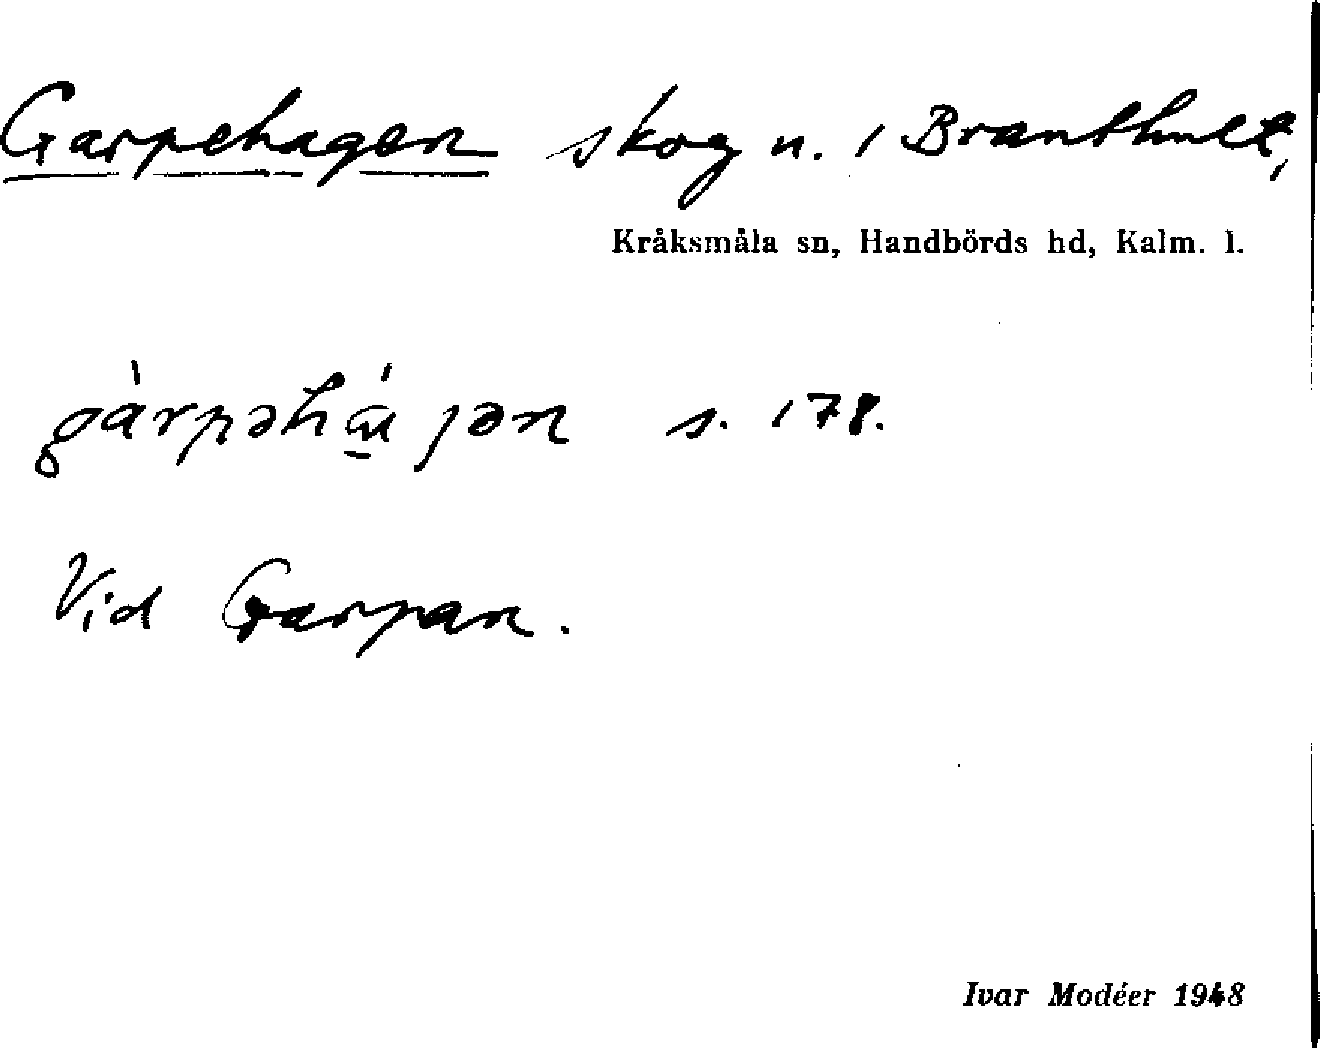 Garpehagen skog n. / Branthult,
Kråksmåla sn, Handbörds hd, Kalm. l.
gàrpəhá̱ɡən s. 178.
Vid Garpan.
Ivar Modéer 1948